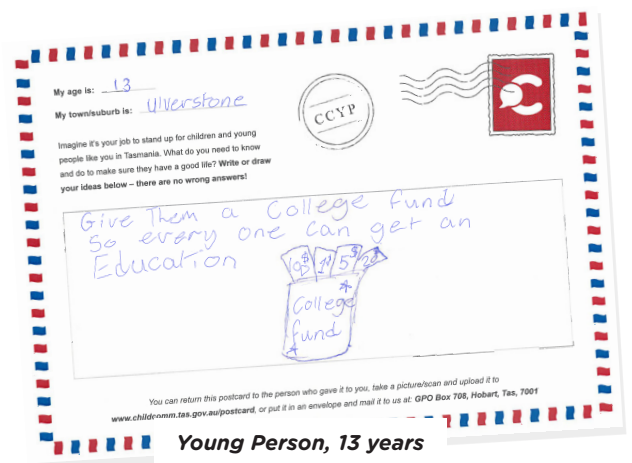 My age is: 13
My town/suburb is: Ulverstone
CCYP
Imagine it's your job to stand up for children and young
people like you in Tasmania. What do you need to know
and do to make sure they have a good life? Write or draw
your ideas below – there are no wrong answers!
Give Them a College fund
So every one can get an
Education
College
fund
You can return this postcard to the person who gave it to you, take a picture/scan and upload it to
www.childcomm.tas.gov.au/postcard, or put it in an envelope and mail it to us at: GPO Box 708, Hobart, Tas, 7001
Young Person, 13 years